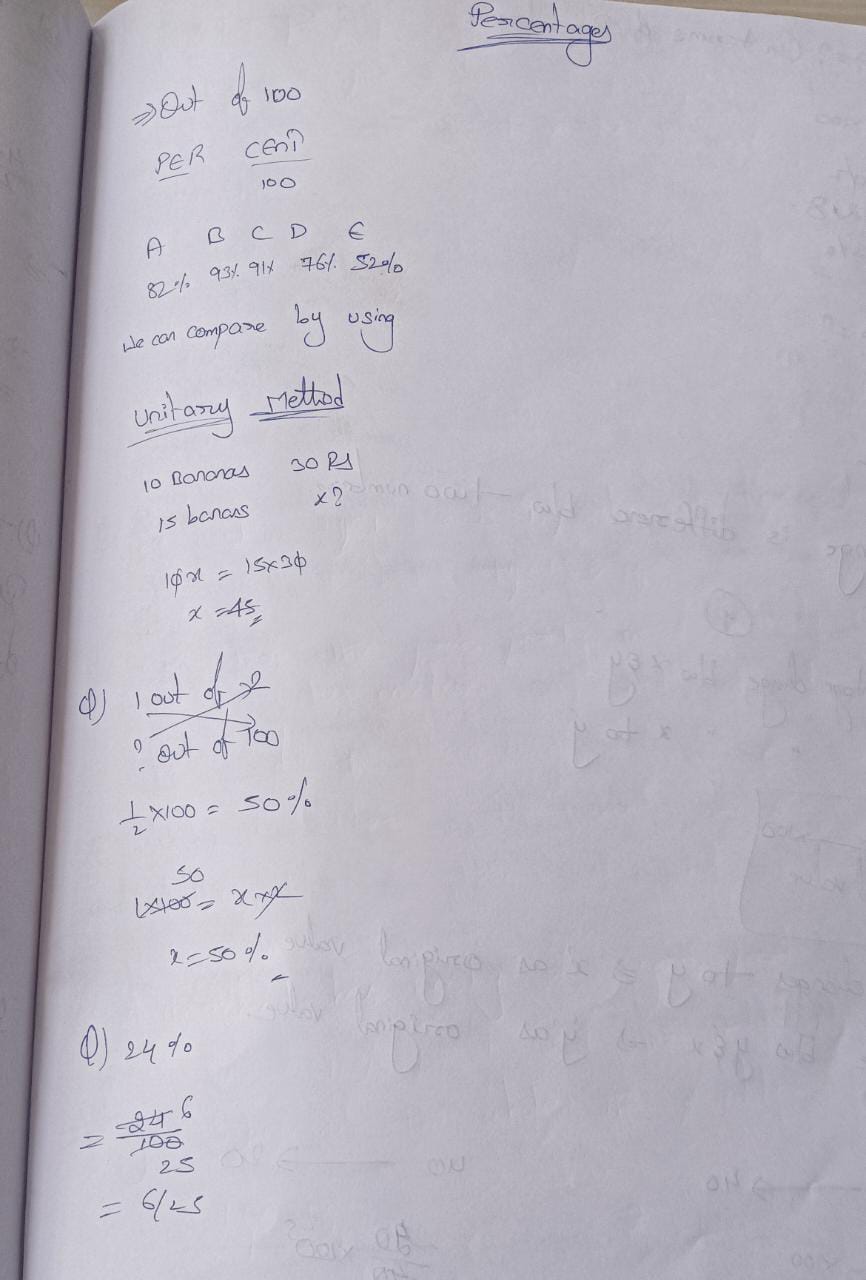 Percentages
⇒ Out of 100
PER CENT
100
A B C D E
82% 93% 91% 76% 52%
We can compare by using
Unitary Method
10 Bananas 30 Rs
15 banans x?
10x = 15x30
x = 45
Q) 1 out of 2
? out of 100
1/2 x100 = 50%
50
1x100 = x x 2
x = 50%
Q) 24%
= 24 6
100
25
= 6/25